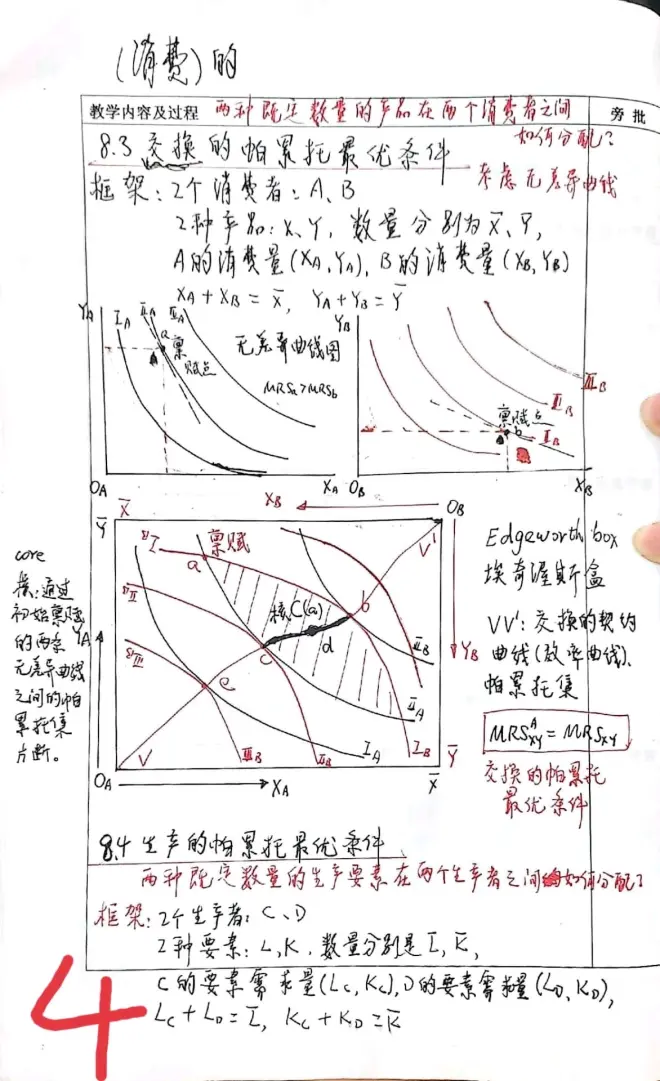 (消费)的
教学内容及过程 两种既定数量的产品在两个消费者之间 旁批
如何分配?
8.3 交换的帕累托最优条件
考虑无差异曲线
框架:2个消费者:A、B
2种产品:X、Y,数量分别为X̄、Ȳ,
A的消费量(XA,YA),B的消费量(XB,YB)
XA+XB=X̄, YA+YB=Ȳ
YA IA IIA IIIA
a
禀赋点
无差异曲线图
MRSa>MRSb
OA XA
YB
IIIB
IIB
禀赋点
b IB
OB XB
XB OB
Ȳ X̄
IB 禀赋
a
V'
IIB
核C(a)
b
d
c
IIIB
e
IIIB
YB
IIA
V
IIIB IIB IA IB
YA
OA XA X̄ Ȳ
core
核:通过
初始禀赋
的两条
无差异曲线
之间的帕
累托集
片断。
Edgeworth box
埃奇渥斯盒
VV':交换的契约
曲线(效率曲线)、
帕累托集
MRS^A_XY=MRS_XY
交换的帕累托
最优条件
8.4 生产的帕累托最优条件
两种既定数量的生产要素在两个生产者之间如何分配?
框架:2个生产者:C、D
2种要素:L,K,数量分别是L̄,K̄,
C的要素需求量(LC,KC),D的要素需求量(LD,KD),
LC+LD=L̄, KC+KD=K̄
4